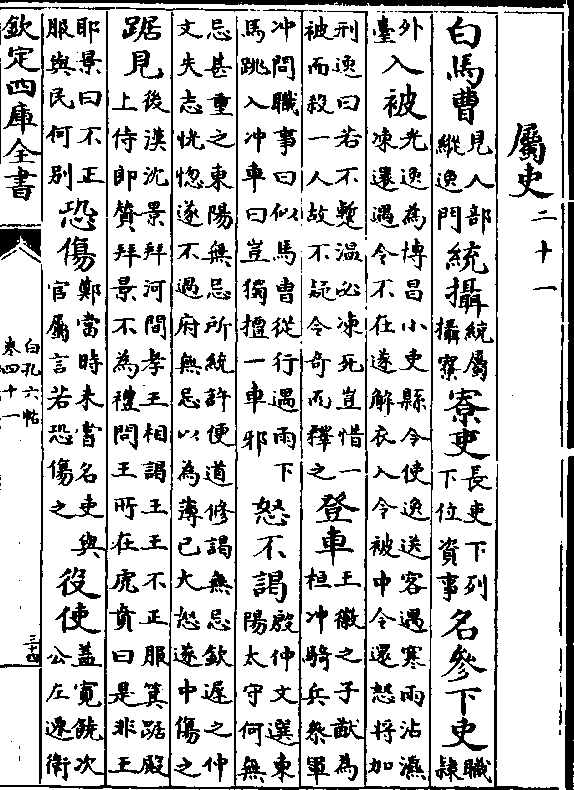 屬吏二十一
白馬曹見人部縱逸門統攝統屬攝察寮吏長吏下列下位資事名參下吏職隸
外臺入被光逸為博昌小吏縣令使逸送客遇寒雨沾濕凍還遇令不在遂解衣入令被中令還怒將加
刑逸曰若不暫温必凍死豈惜一被而殺一人故不疑令奇而釋之登車王徽之子猷為桓冲騎兵參軍
冲問職事曰似馬曹從行遇雨下馬跳入冲車曰豈獨擅一車邪怒不謁殷仲文選東陽太守何無
忌甚重之東陽無忌所統許便道修謁無忌欽遲之仲文失志恍惚遂不過府無忌以為薄已大怒遂中傷之
踞見後漢沈景拜河間孝王相謁王王不正服箕踞殿上侍郎贊拜景不為禮問王所在虎賁曰是非王
耶景曰不正服與民何别恐傷鄭當時未嘗名吏與官屬言若恐傷之役使蓋寛饒次公左遷衛
欽定四庫全書
白孔六帖
卷四十一
三十四